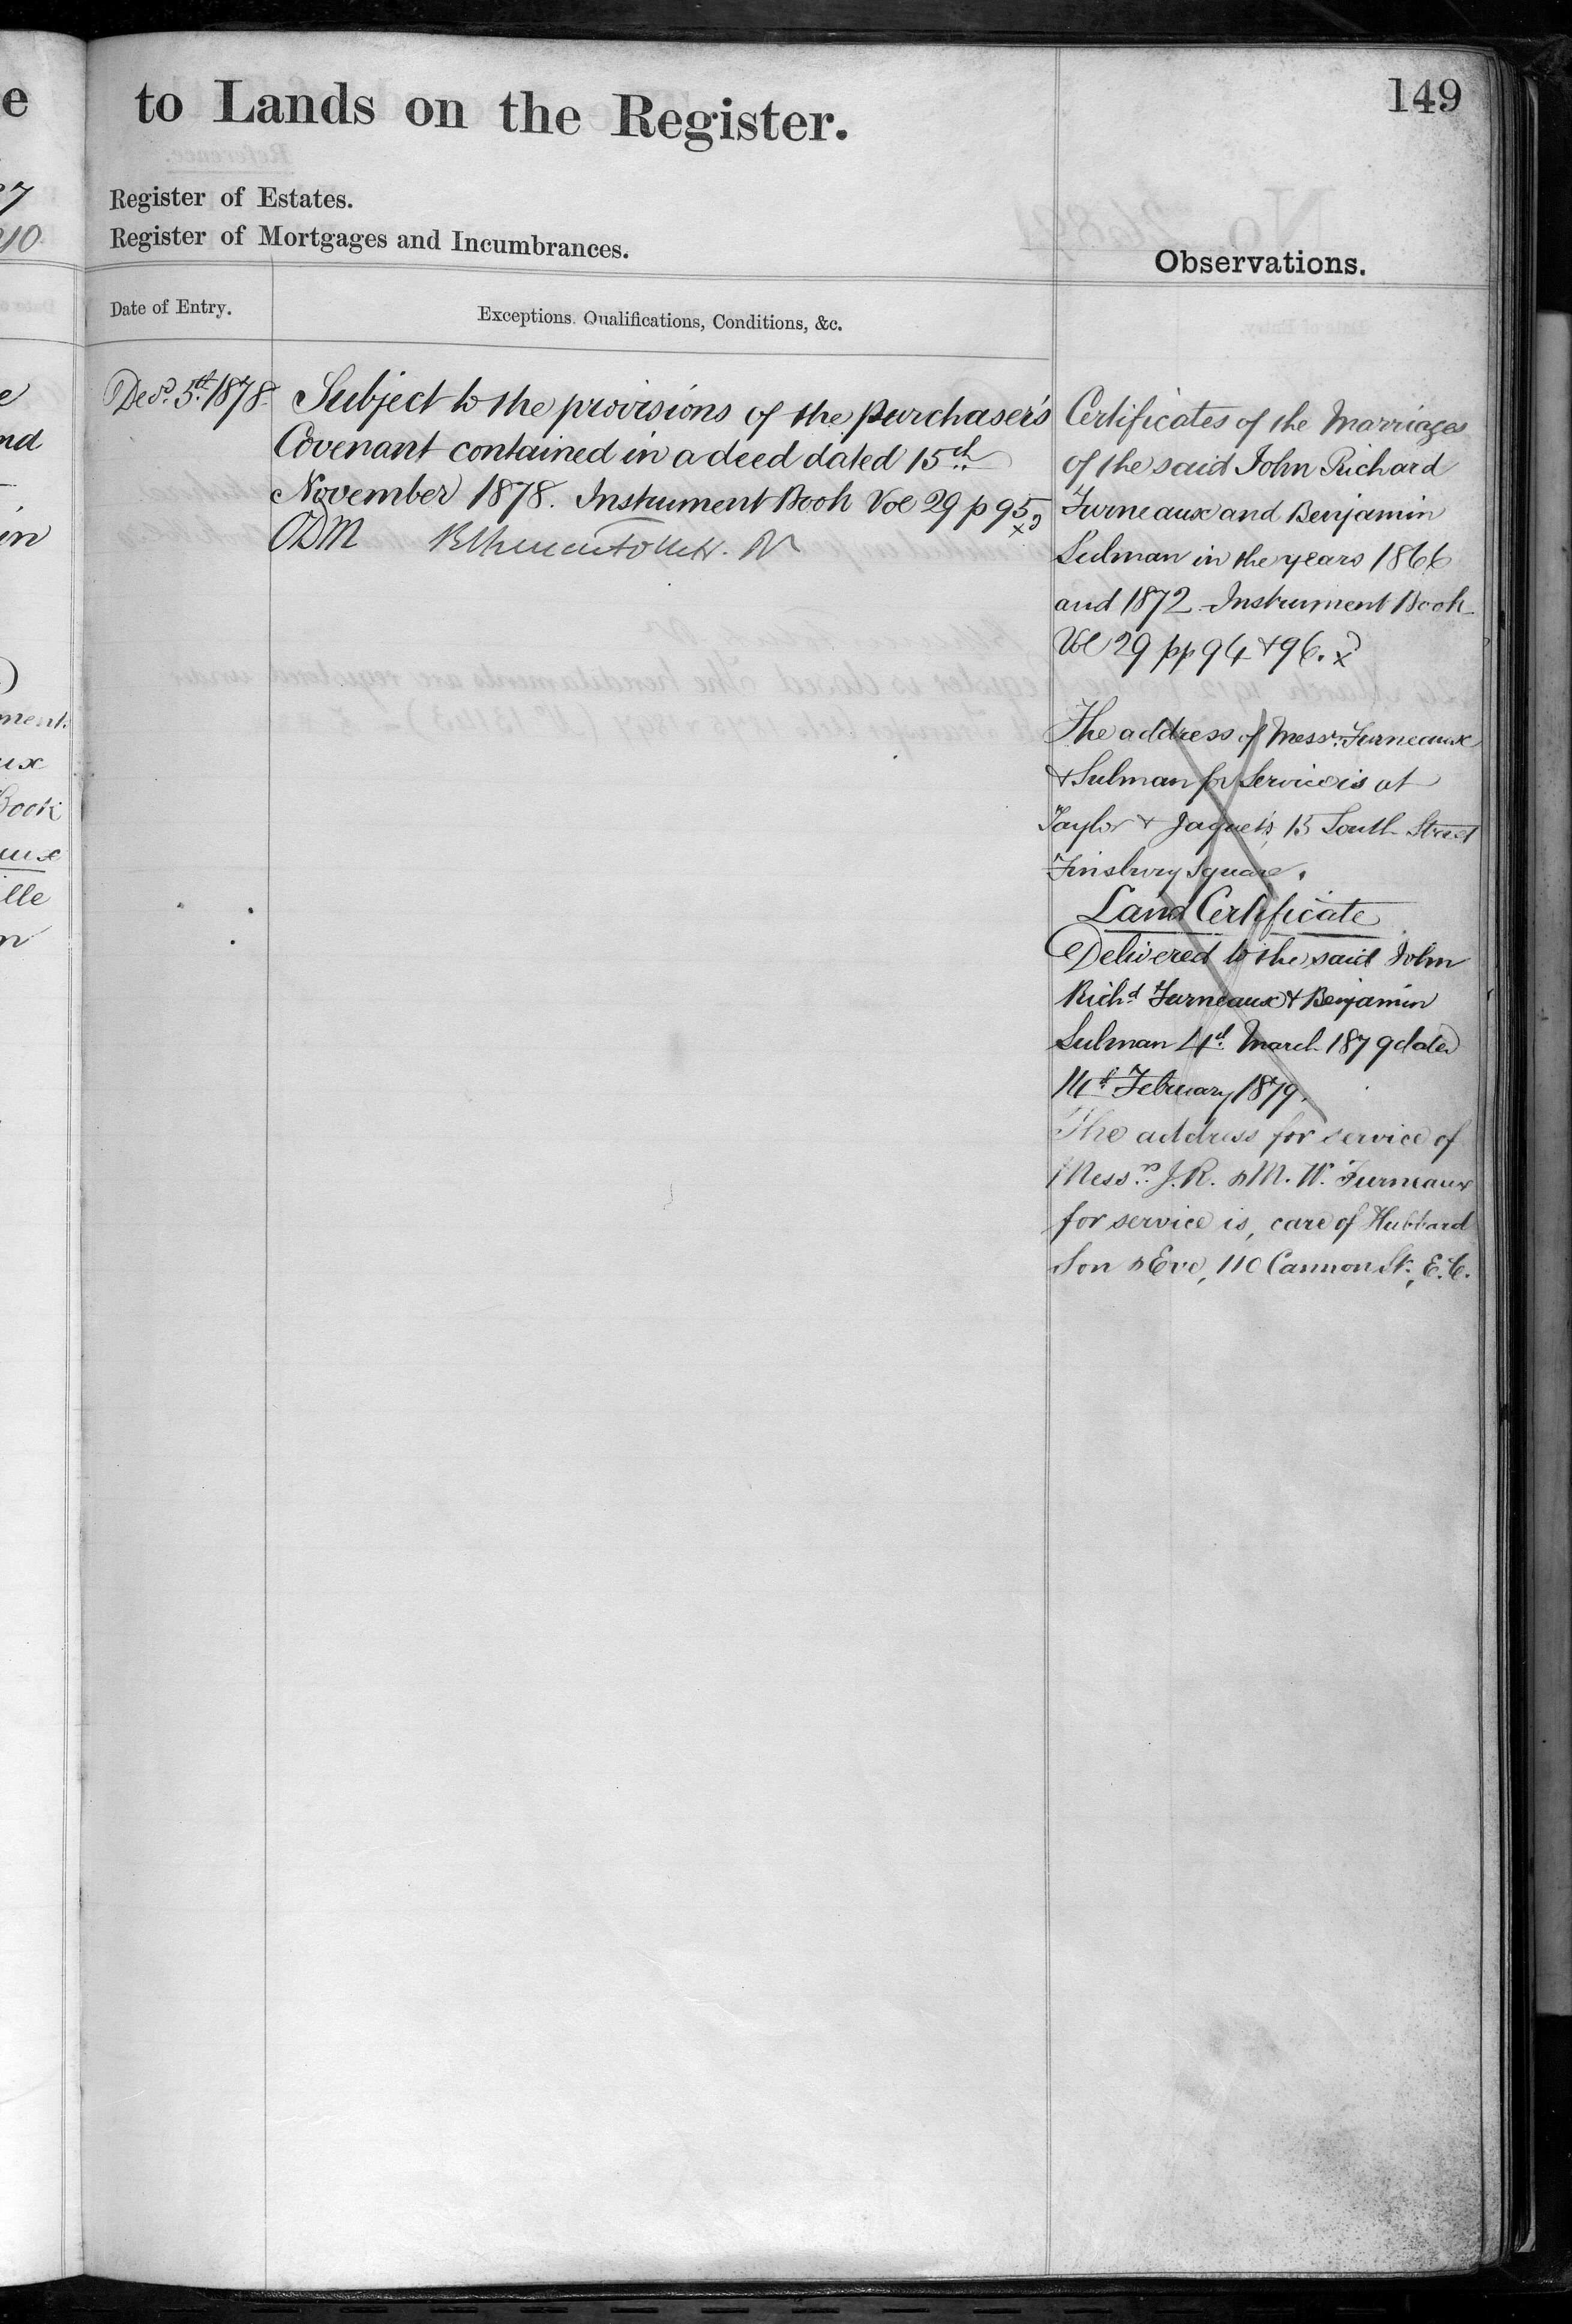 149
to Lands on the Register.
Register of Estates.
Register of Mortgages and Incumbrances.
Observations.
Date of Entry.
Exceptions. Qualifications, Conditions, &c.
Decr. 5th 1878.
Subject to the provisions of the purchaser's
Covenant contained in a deed dated 15th
November 1878. Instrument Book Vol 29 p 95
ODM
Certificates of the Marriages
of the said John Richard
Furneaux and Benjamin
Sulman in the years 1866
and 1872 Instrument Book
Vol 29 pp 94 & 96. x
The address of Messrs. Furneaux
& Sulman for service is at
Taylor & Jaquet's, 15 South Street
Finsbury Square.
Land Certificate
Delivered to the said John
Richd Furneaux & Benjamin
Sulman 4th March 1879 dated
14th February 1879.
The address for service of
Messrs. J. R. & M. W. Furneaux
for service is, care of Hubbard
Son & Eve, 110 Cannon St., E.C.
e
27
210
e
nd
in
ment.
ux
Book
aux
ille
n